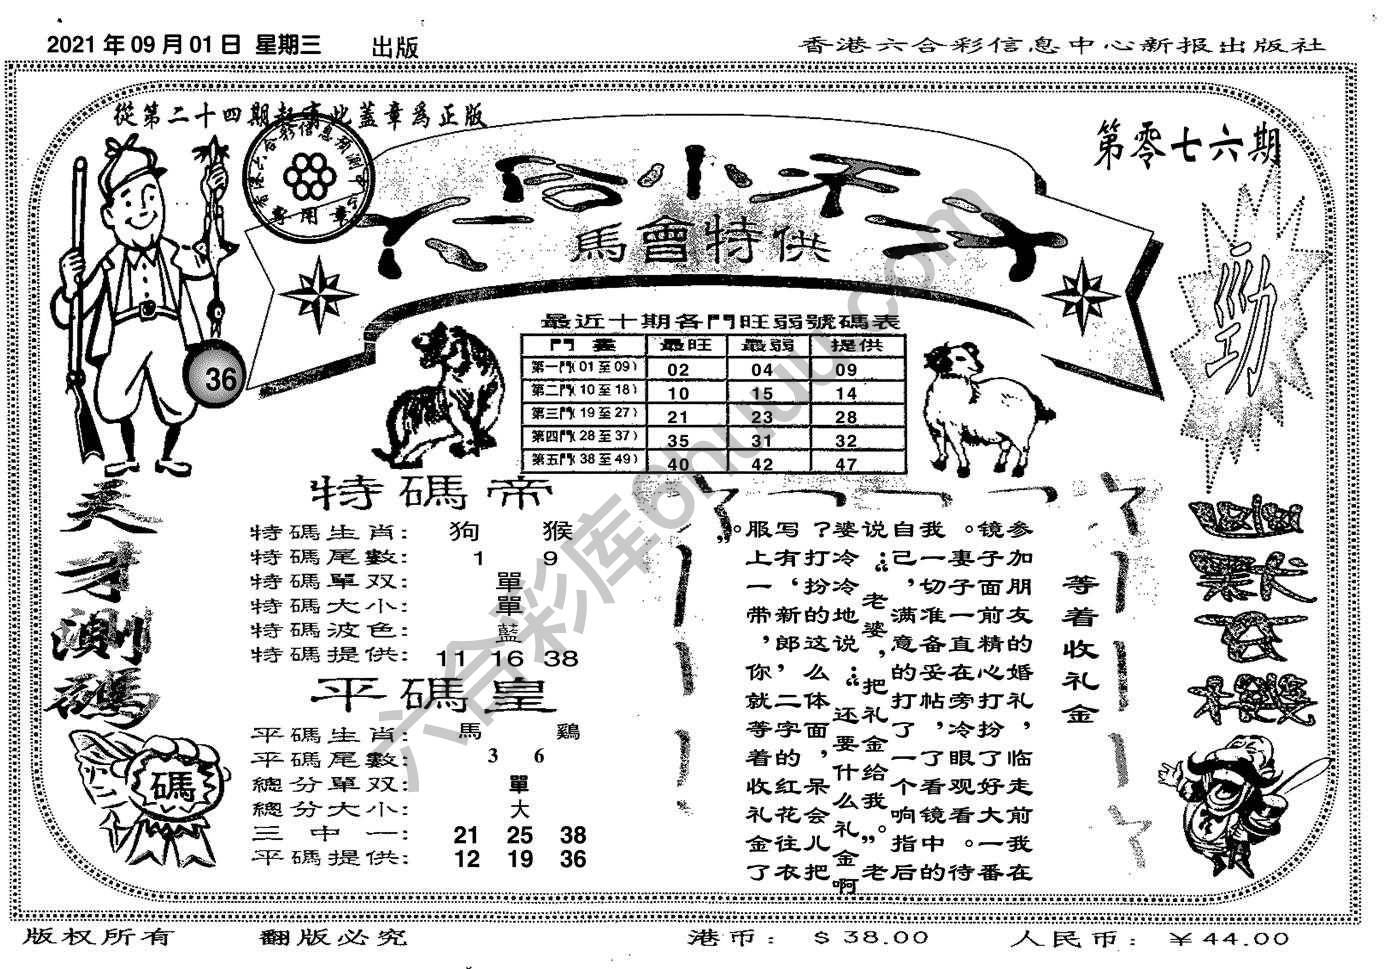 2021年09月01日 星期三 出版
香港六合彩信息中心新报出版社
從第二十四期起寄此蓋章爲正版
第零七六期
六合小天才
馬會特供
專用章
勁
36
最近十期各門旺弱號碼表
門 數 最旺 最弱 提供
第一門(01至09) 02 04 09
第二門(10至18) 10 15 14
第三門(19至27) 21 23 28
第四門(28至37) 35 31 32
第五門(38至49) 40 42 47
天才測碼
碼
特碼帝
特碼生肖: 狗 猴
特碼尾數: 1 9
特碼單双: 單
特碼大小: 單
特碼波色: 藍
特碼提供: 11 16 38
平碼皇
平碼生肖: 馬 鷄
平碼尾數: 3 6
總分單双: 單
總分大小: 大
三中一: 21 25 38
平碼提供: 12 19 36
等着收礼金
参加朋友的婚礼，临走前我在
镜子面前精心打扮了好大一番
。妻子一直在旁冷眼观看。待
我一切准备妥帖，了看镜中的
自己，满意的打了一个响指后
说：“老婆，把礼金给我。”老
婆冷冷地说：“还要什么礼金啊
？打扮的这么体面，呆会儿把
写有‘新郎’二字的红花往衣
服上一带，你就等着收礼金了
。”
六合彩库6huuu.com
版权所有 翻版必究
港币：＄38.00 人民币：￥44.00